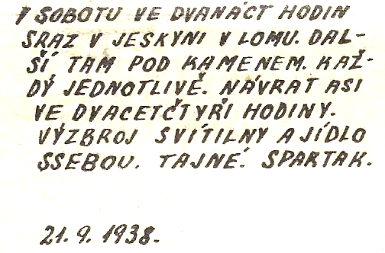 V SOBOTU VE DVANÁCT HODIN
SRAZ V JESKYNI V LOMU. DAL-
ŠÍ TAM POD KAMENEM. KAŽ-
DÝ JEDNOTLIVĚ. NÁVRAT ASI
VE DVACETČTYŘI HODINY.
VÝZBROJ SVÍTILNY A JÍDLO
SSEBOU. TAJNÉ. SPARTAK.
21. 9. 1938.